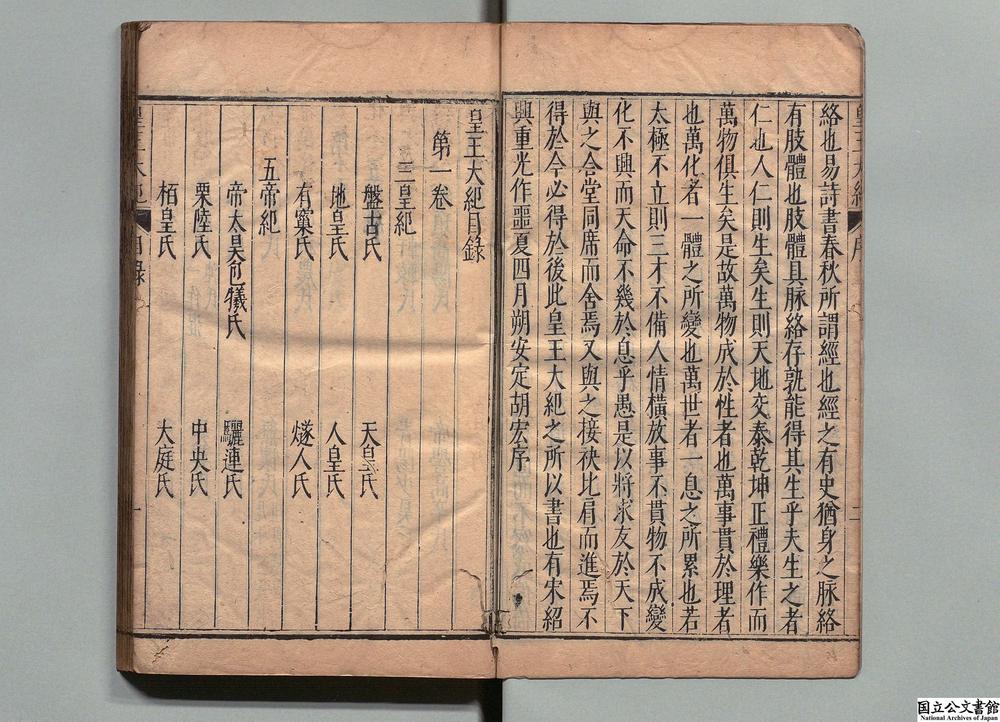 絡也易詩書春秋所謂經也經之有史猶身之脉絡
有肢體也肢體具脉絡存孰能得其生乎夫生之者
仁也人仁則生矣生則天地交泰乾坤正禮樂作而
萬物俱生矣是故萬物成於性者也萬事貫於理者
也萬化者一體之所變也萬世者一息之所累也若
太極不立則三才不備人情橫放事不貫物不成變
化不興而天命不幾於息乎愚是以將求友於天下
與之合堂同席而舍焉又與之接袂比肩而進焉不
得於今必得於後此皇王大紀之所以書也有宋紹
興重光作噩夏四月朔安定胡宏序
皇王大紀目錄
第一卷
三皇紀
盤古氏 天皇氏
地皇氏 人皇氏
有窠氏 燧人氏
五帝紀
帝太昊包犧氏 驪連氏
栗陸氏 中央氏
栢皇氏 大庭氏
皇王大紀 目錄 一
国立公文書館
National Archives of Japan